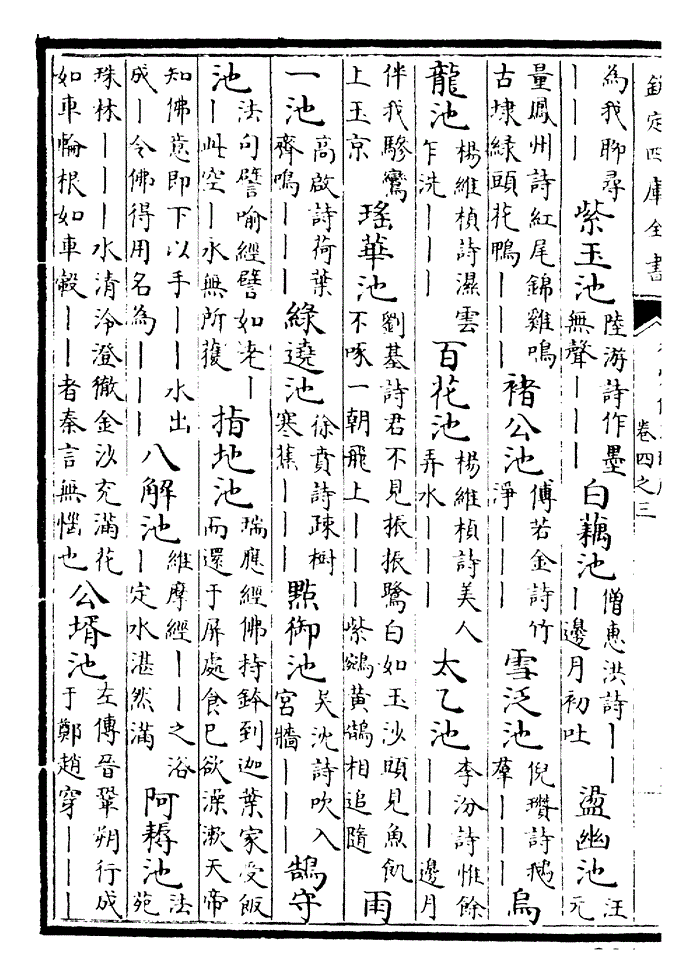 欽定四庫全書
卷四之三
為我聊尋｜｜｜ 紫玉池 陸游詩作墨無聲｜｜｜ 白藕池 僧惠洪詩｜｜｜邊月初吐 盪幽池 汪元
量鳳州詩紅尾錦雞鳴古埭綠頭花鴨｜｜｜ 褚公池 傅若金詩竹淨｜｜｜ 雪泛池 倪瓚詩鵝羣｜｜｜ 烏
龍池 楊維楨詩濕雲乍洗｜｜｜ 百花池 楊維楨詩美人弄水｜｜｜ 太乙池 李汾詩惟餘｜｜｜邊月
伴我驂鸞上玉京 瑤華池 劉基詩君不見振振鷺白如玉沙頭見魚飢不啄一朝飛上｜｜｜紫鵷黃鵠相追隨 雨
一池 高啟詩荷葉齊鳴｜｜｜ 綠遶池 徐賁詩疎樹寒蕉｜｜｜ 點御池 吳沈詩吹入宮牆｜｜｜ 鵠守
池 法句譬喻經譬如老｜｜此空｜水無所獲 指地池 瑞應經佛持鉢到迦葉家受飯而還于屏處食已欲澡漱天帝
知佛意即下以手｜｜水出成｜令佛得用名為｜｜｜ 八解池 維摩經｜｜之浴｜定水湛然滿 阿耨池 法苑
珠林｜｜｜水清泠澄徹金沙充滿花如車輪根如車轂｜｜者秦言無惱也 公壻池 左傳晉鞏朔行成于鄭趙穿｜｜｜